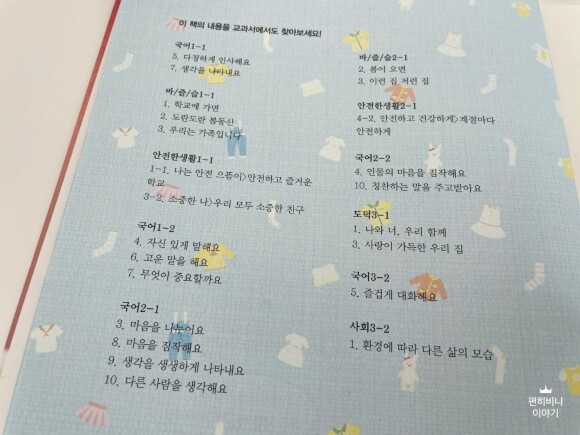 이 책의 내용을 교과서에서도 찾아보세요!
국어1-1
5. 다정하게 인사해요
7. 생각을 나타내요
바/즐/슬1-1
1. 학교에 가면
2. 도란도란 봄동산
3. 우리는 가족입니다
안전한생활1-1
1-1. 나는 안전 으뜸이>안전하고 즐거운
학교
3-2. 소중한 나>우리 모두 소중한 친구
국어1-2
4. 자신 있게 말해요
6. 고운 말을 해요
7. 무엇이 중요할까요
국어2-1
3. 마음을 나누어요
8. 마음을 짐작해요
9. 생각을 생생하게 나타내요
10. 다른 사람을 생각해요
바/즐/슬2-1
2. 봄이 오면
3. 이런 집 저런 집
안전한생활2-1
4-2. 안전하고 건강하게>계절마다
안전하게
국어2-2
4. 인물의 마음을 짐작해요
10. 칭찬하는 말을 주고받아요
도덕3-1
1. 나와 너, 우리 함께
3. 사랑이 가득한 우리 집
국어3-2
5. 즐겁게 대화해요
사회3-2
1. 환경에 따라 다른 삶의 모습
편히비니
이야기